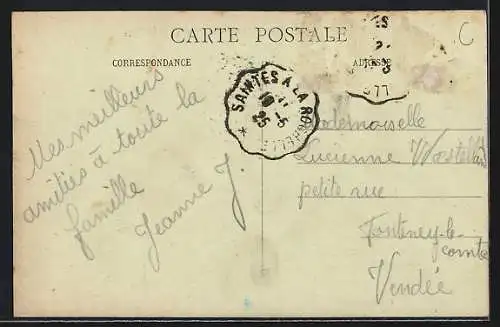 CARTE POSTALE
CORRESPONDANCE
ADRESSE
C
SAINTES A LA ROCHELLE
19 -5
25
Mes meilleurs
amitiés à toute la
famille
Jeanne J.
Mademoiselle
Lucienne
petite rue
Fontenay-le-
comte
Vendée